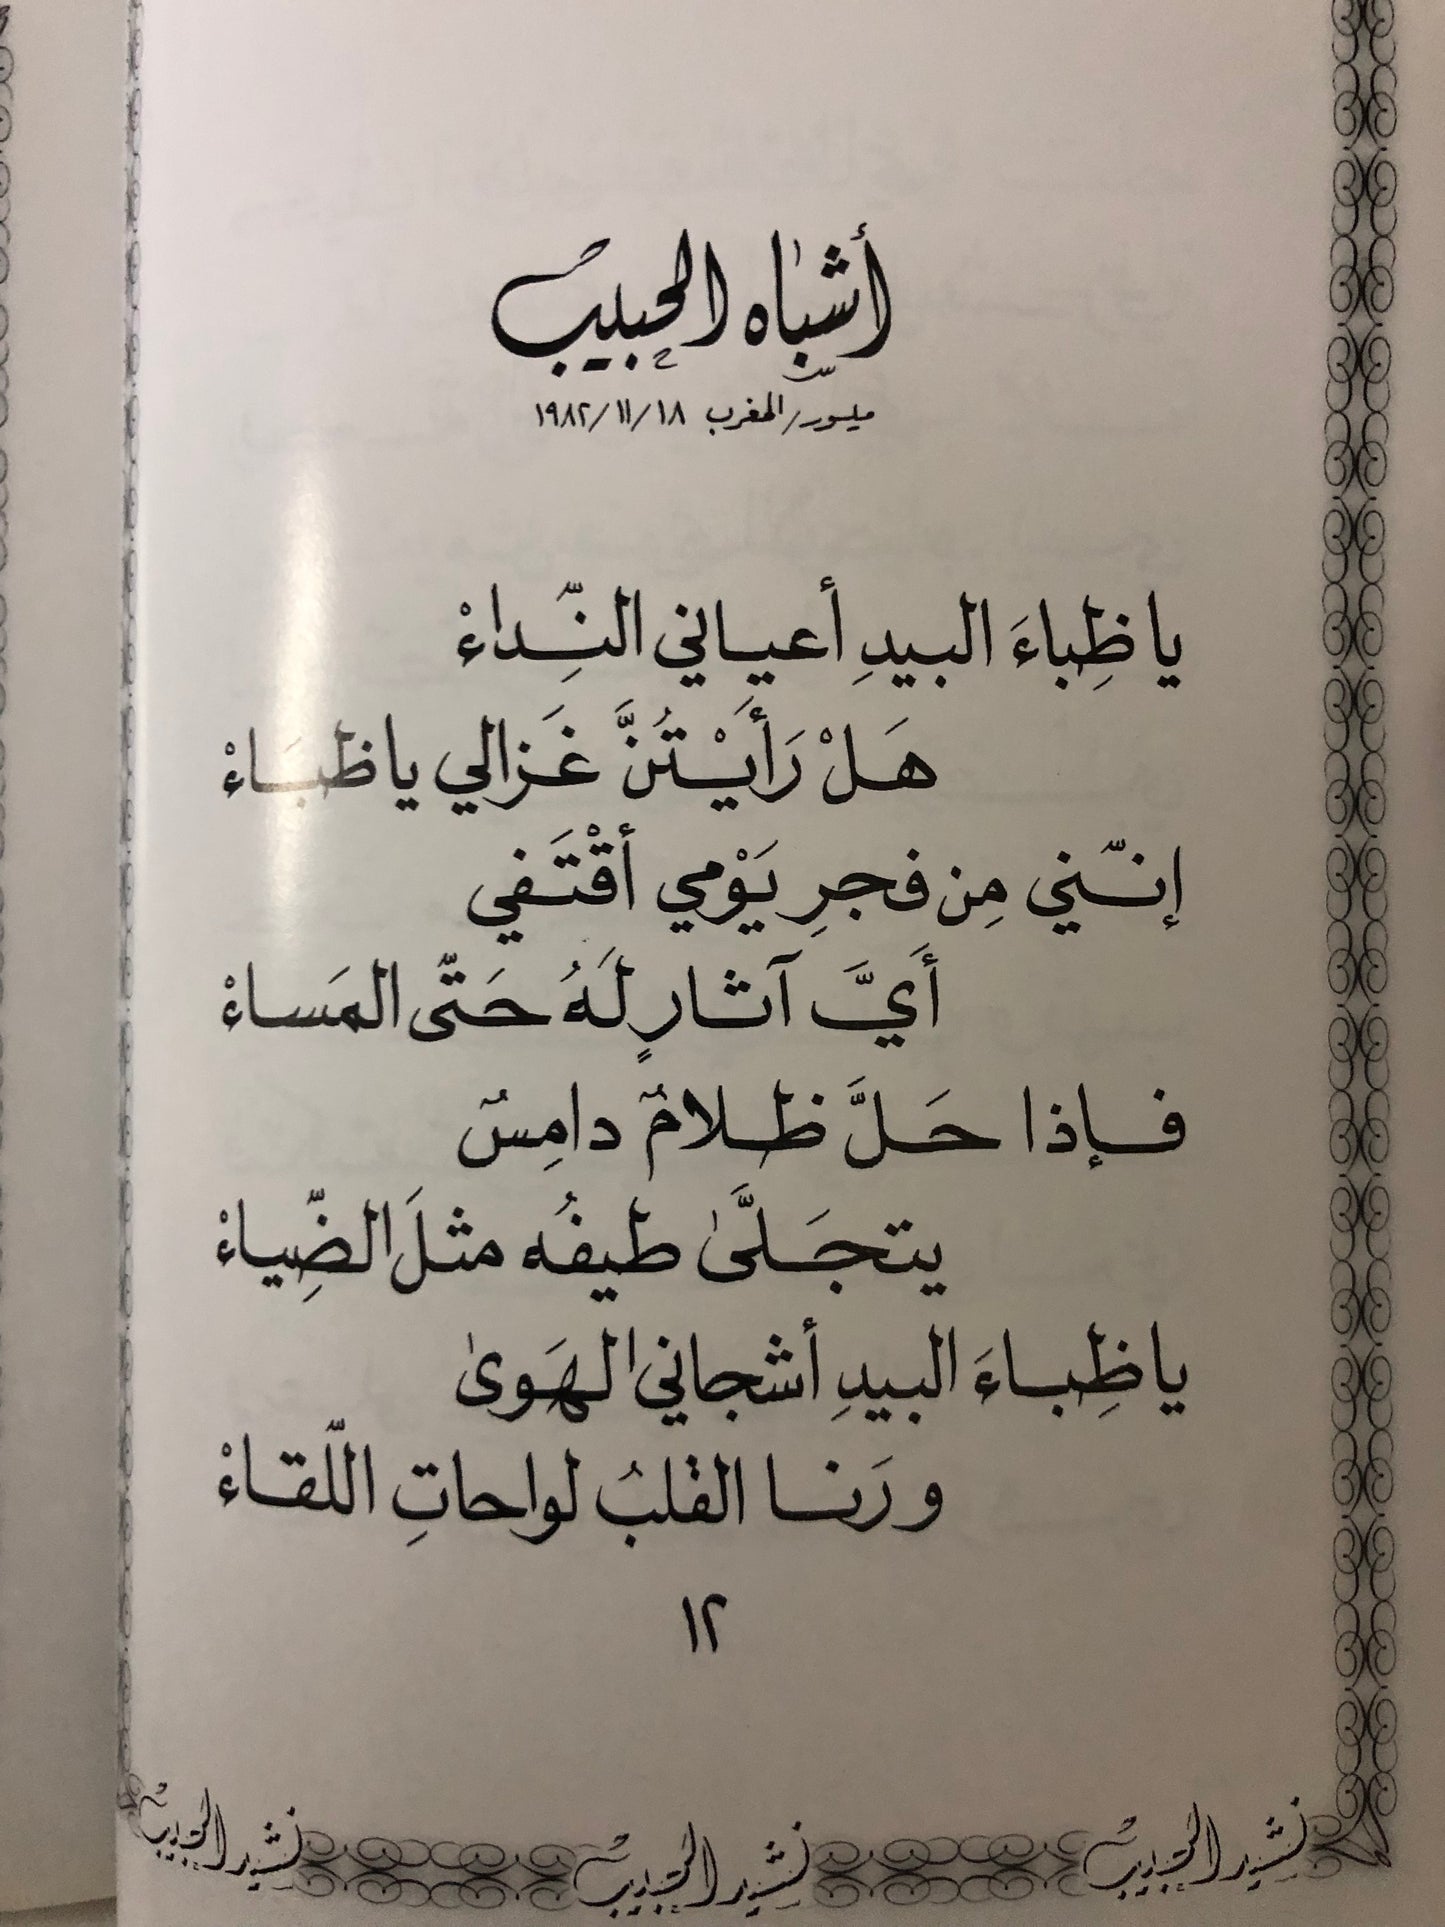 أشباه الحبيب
ميلور/المغرب ١٩٨٢/١١/١٨
يا ظِباءَ البيدِ أعياني النِّداءْ
هَلْ رَأَيْتُنَّ غَزالي يا ظبَاءْ
إنّني مِن فجرِ يَوْمي أقْتَفي
أَيَّ آثارٍ لَهُ حَتّى المَساءْ
فإذا حَلَّ ظلامٌ دامِسٌ
يتجَلَّىٰ طيفُه مثلَ الضِّياءْ
يا ظِباءَ البيدِ أشجاني الهَوىٰ
ورَنا القلبُ لواحاتِ اللّقاءْ
١٢
نشيد الحبيب نشيد الحبيب نشيد الحبيب